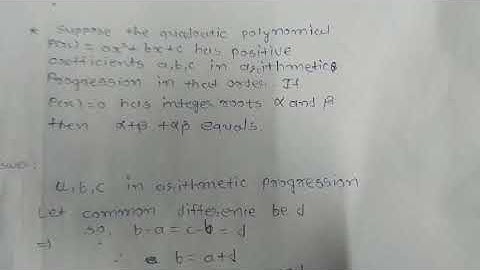 * Suppose the quadratic polynomial
P(x) = ax²+ bx+c has positive
coefficients a,b,c in arithmetic
Progression in that order. If
P(x)=0 has integer roots α and β
then α+β +αβ equals.
a,b,c in arithmetic progression
Let common difference be d
so, b-a = c-b = d
⇒ ∴ b = a+d